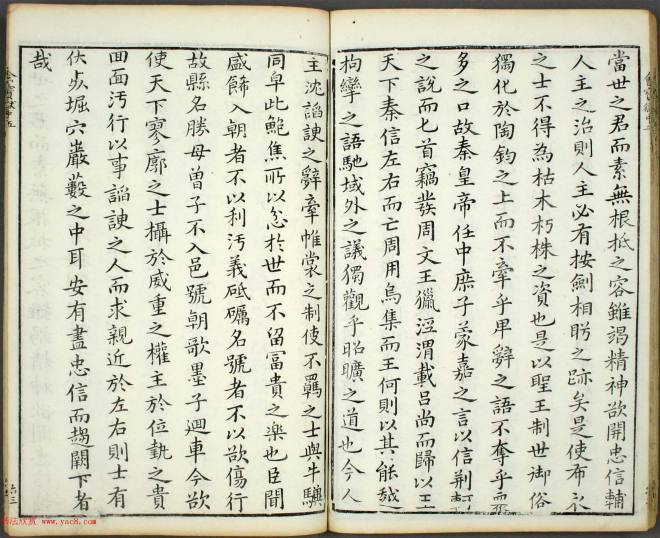 當世之君而素無根柢之容雖竭精神欲開忠信輔
人主之治則人主必有按劍相眄之跡矣是使布衣
之士不得為枯木朽株之資也是以聖王制世御俗
獨化於陶鈞之上而不牽乎卑辭之語不奪乎眾
多之口故秦皇帝任中庶子蒙嘉之言以信荊軻
之說而匕首竊發周文王獵涇渭載呂尚而歸以王
天下秦信左右而亡周用烏集而王何則以其能越
拘攣之語馳域外之議獨觀乎昭曠之道也今人
主沈諂諛之辭牽帷裳之制使不羈之士與牛驥
同皁此鮑焦所以忿於世而不留富貴之樂也臣聞
盛飾入朝者不以利汚義砥礪名號者不以欲傷行
故縣名勝母曾子不入邑號朝歌墨子迴車今欲
使天下寥廓之士攝於威重之權主於位埶之貴
回面汚行以事諂諛之人而求親近於左右則士有
伏死堀穴巖藪之中耳安有盡忠信而趨闕下者
哉
六三
www.yac8.com